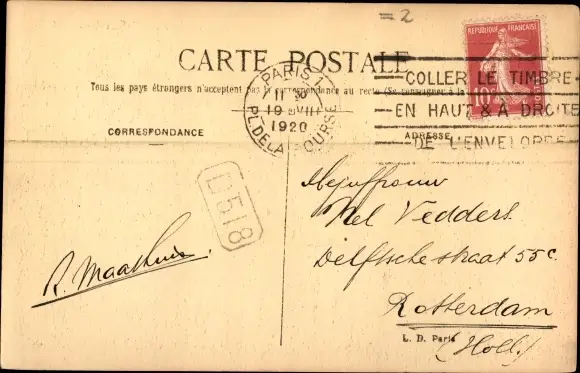 = 2
RÉPUBLIQUE FRANÇAISE
10c
CARTE POSTALE
Tous les pays étrangers n'acceptent pas la correspondance au recto (Se renseigner à la
PARIS 1
11 30
19 VIII
1920
PL. DE LA BOURSE
COLLER LE TIMBRE
EN HAUT & A DROITE
DE L'ENVELOPPE
CORRESPONDANCE
ADRESSE
D518
Mejuffrouw
Nel Vedders.
Delftschestraat 55c.
Rotterdam
(Holl.)
R. Maashuis.
L. D. Paris